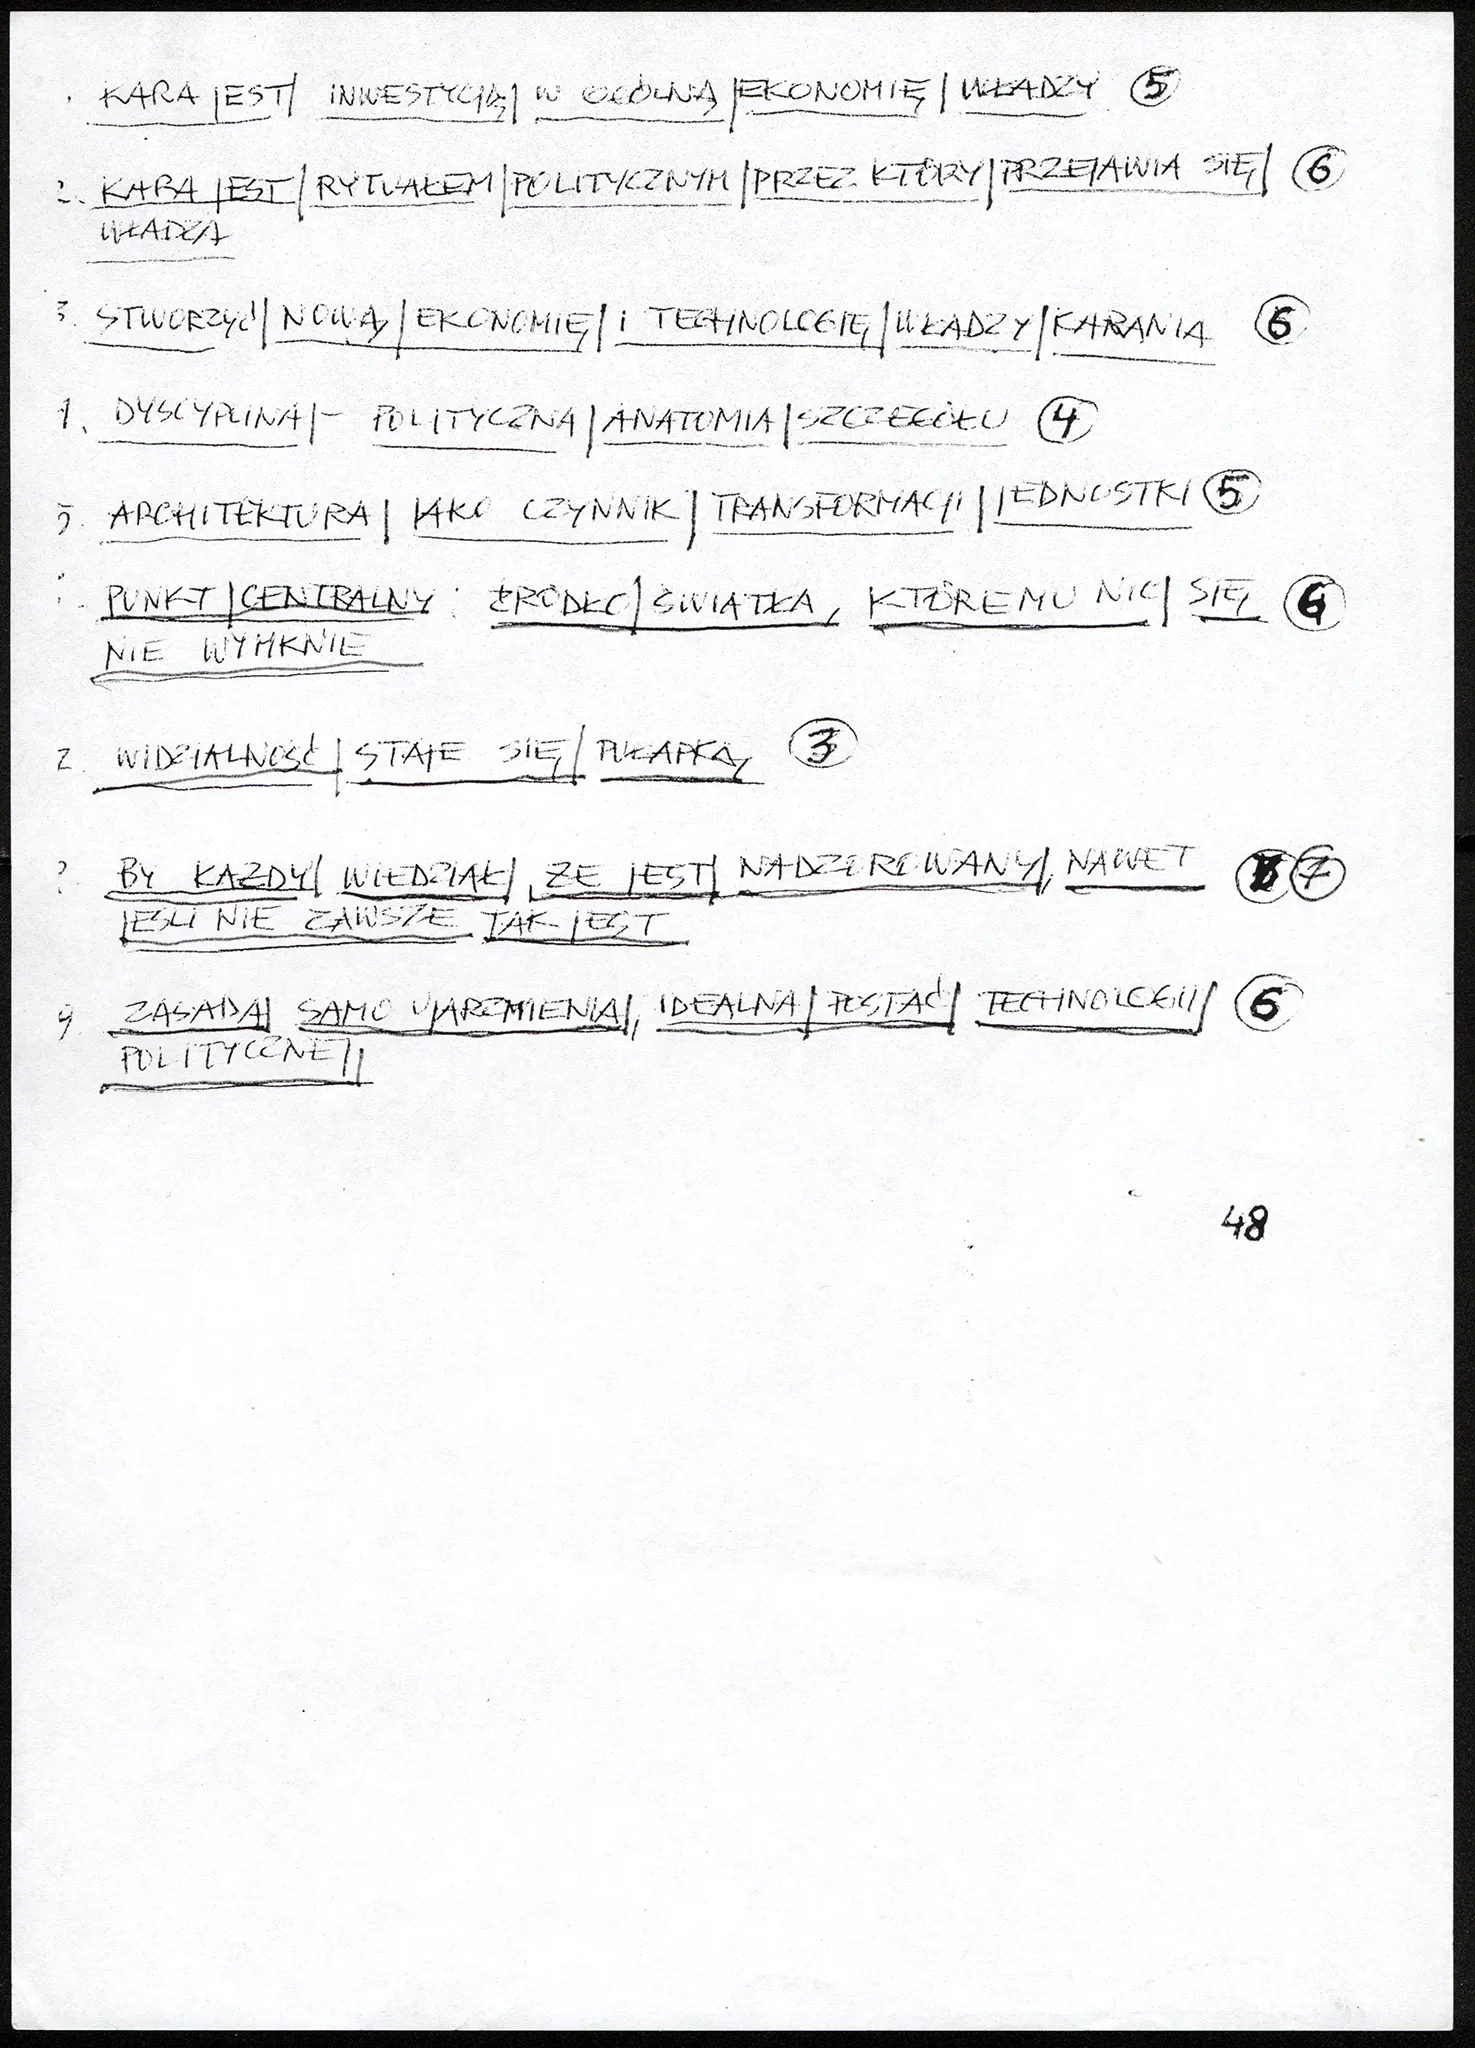 . KARA JEST/ INWESTYCJĄ/ W OGÓLNĄ /EKONOMIĘ/ WŁADZY ⑤
2. KARA JEST/RYTUAŁEM/POLITYCZNYM/PRZEZ KTÓRY/PRZEJAWIA SIĘ/ ⑥
WŁADZA
3. STWORZYĆ/NOWĄ/EKONOMIĘ/I TECHNOLOGIĘ/WŁADZY/KARANIA ⑥
4. DYSCYPLINA/- POLITYCZNA/ANATOMIA/SZCZEGÓŁU ④
5. ARCHITEKTURA/ JAKO CZYNNIK/ TRANSFORMACJI/JEDNOSTKI ⑤
PUNKT/CENTRALNY: ŹRÓDŁO/ŚWIATŁA, KTÓREMU NIC/ SIĘ ⑥
NIE WYMKNIE
WIDZIALNOŚĆ/STAJE SIĘ/PUŁAPKĄ ③
BY KAŻDY/ WIEDZIAŁ/, ŻE JEST/ NADZOROWANY/, NAWET ⑦
JEŚLI NIE ZAWSZE TAK JEST
9. ZASADA/ SAMO UJARZMIENIA/, IDEALNA/POSTAĆ/ TECHNOLOGII/ ⑥
POLITYCZNEJ/
48